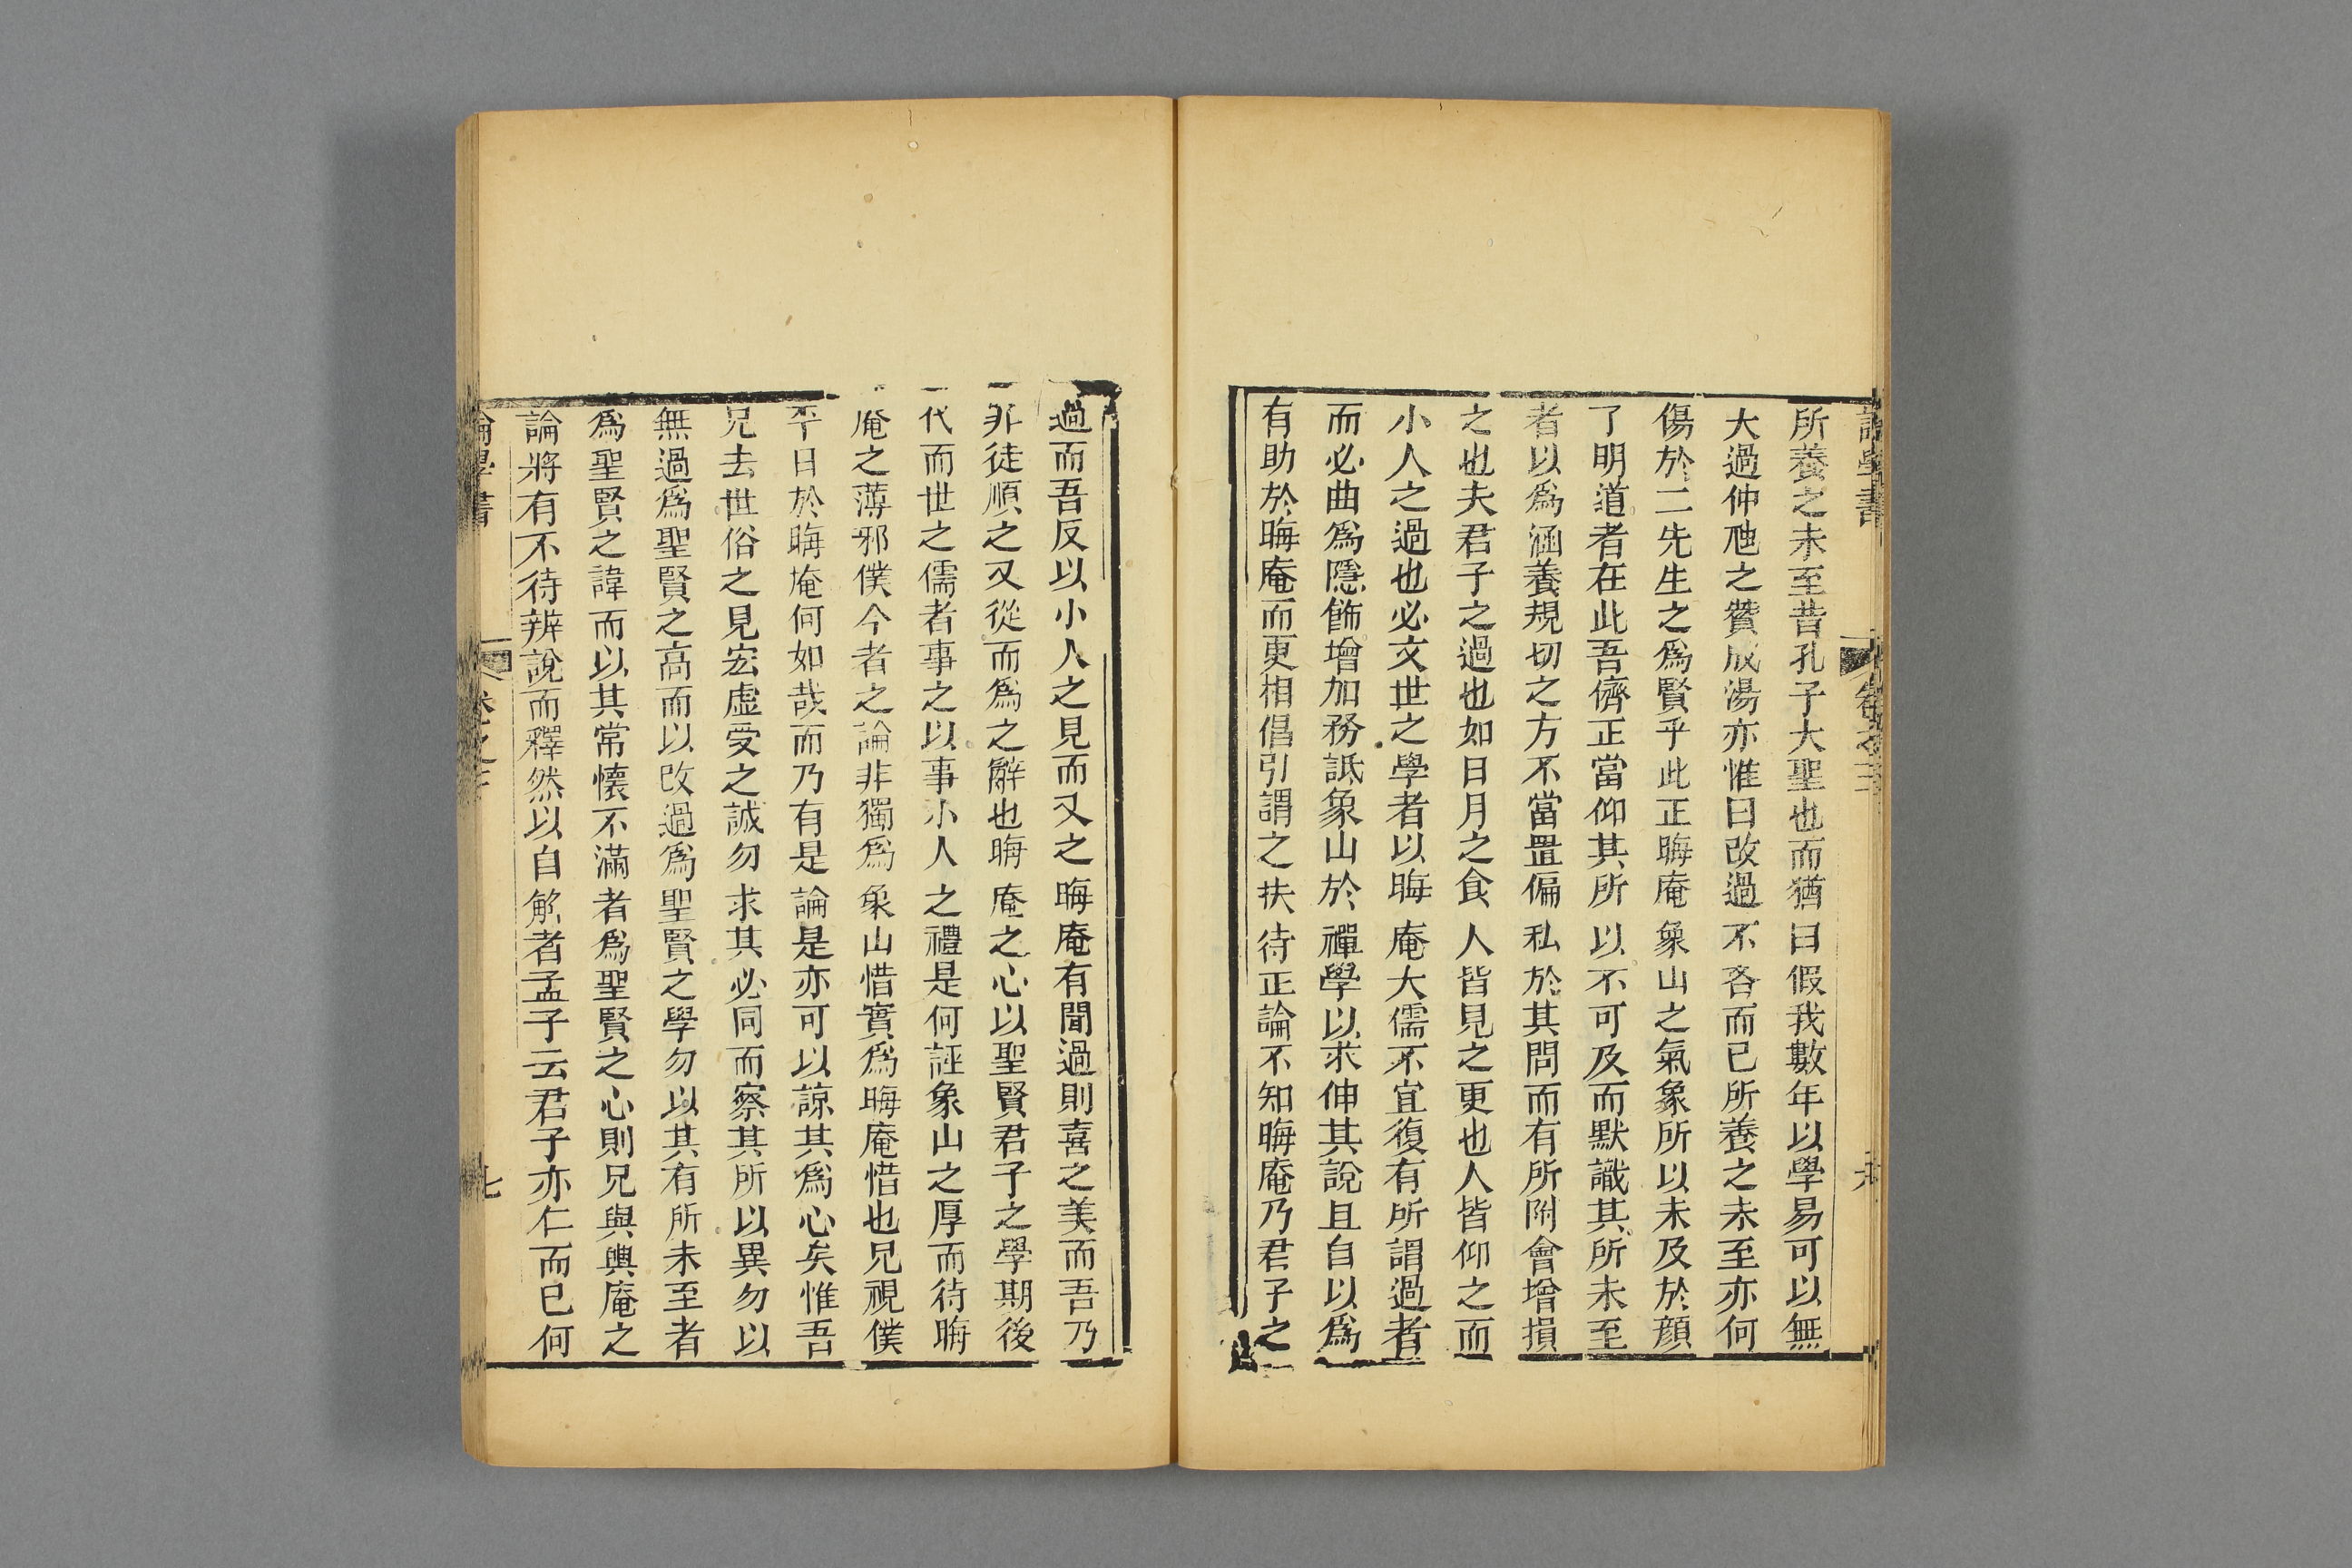 論學書 卷之三 六
所養之未至昔孔子大聖也而猶曰假我數年以學易可以無
大過仲虺之贊成湯亦惟曰改過不吝而已所養之未至亦何
傷於二先生之爲賢乎此正晦庵象山之氣象所以未及於顔
了明道者在此吾儕正當仰其所以不可及而默識其所未至
者以爲涵養規切之方不當置偏私於其間而有所附會增損
之也夫君子之過也如日月之食人皆見之更也人皆仰之而
小人之過也必文世之學者以晦庵大儒不宜復有所謂過者
而必曲爲隱飾增加務詆象山於禪學以求伸其說且自以爲
有助於晦庵而更相倡引謂之扶待正論不知晦庵乃君子之
過而吾反以小人之見而又之晦庵有聞過則喜之美而吾乃
非徒順之又從而爲之辭也晦庵之心以聖賢君子之學期後
代而世之儒者事之以事小人之禮是何誣象山之厚而待晦
庵之薄邪僕今者之論非獨爲象山惜實爲晦庵惜也兄視僕
平日於晦庵何如哉而乃有是論是亦可以諒其爲心矣惟吾
兄去世俗之見宏虛受之誠勿求其必同而察其所以異勿以
無過爲聖賢之高而以改過爲聖賢之學勿以其有所未至者
爲聖賢之諱而以其常懷不滿者爲聖賢之心則兄與輿庵之
論將有不待辨說而釋然以自解者孟子云君子亦仁而已何
論學書 卷之三 七